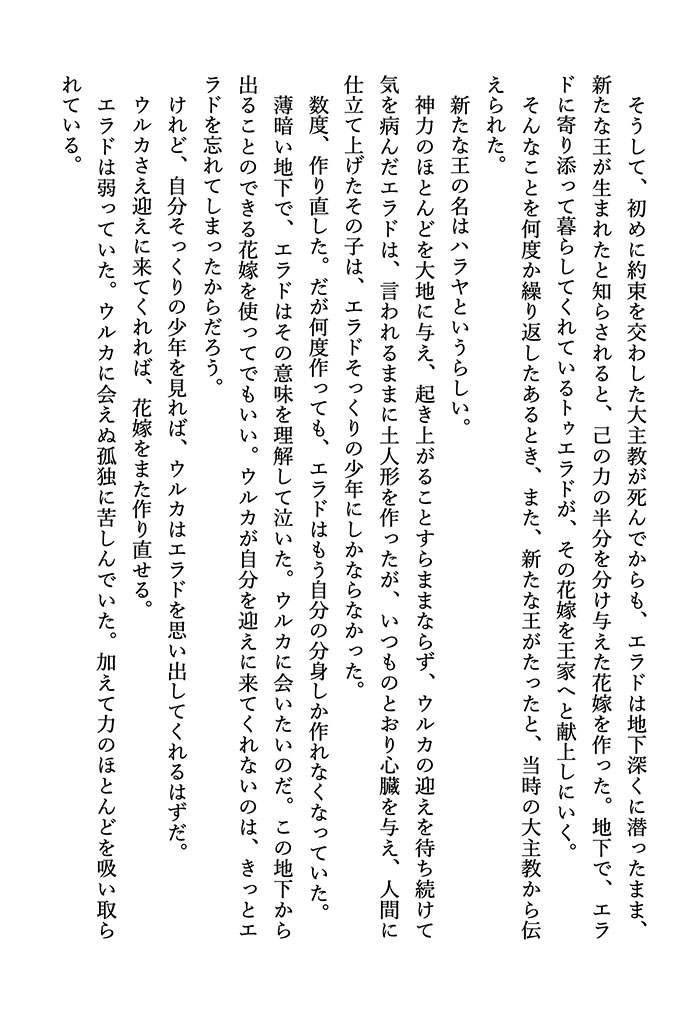 そうして、初めに約束を交わした大主教が死んでからも、エラドは地下深くに潜ったまま、
新たな王が生まれたと知らされると、己の力の半分を分け与えた花嫁を作った。地下で、エラ
ドに寄り添って暮らしてくれているトゥエラドが、その花嫁を王家へと献上しにいく。
　そんなことを何度か繰り返したあるとき、また、新たな王がたったと、当時の大主教から伝
えられた。
　新たな王の名はハラヤというらしい。
　神力のほとんどを大地に与え、起き上がることすらままならず、ウルカの迎えを待ち続けて
気を病んだエラドは、言われるままに土人形を作ったが、いつものとおり心臓を与え、人間に
仕立て上げたその子は、エラドそっくりの少年にしかならなかった。
　数度、作り直した。だが何度作っても、エラドはもう自分の分身しか作れなくなっていた。
　薄暗い地下で、エラドはその意味を理解して泣いた。ウルカに会いたいのだ。この地下から
出ることのできる花嫁を使ってでもいい。ウルカが自分を迎えに来てくれないのは、きっとエ
ラドを忘れてしまったからだろう。
　けれど、自分そっくりの少年を見れば、ウルカはエラドを思い出してくれるはずだ。
　ウルカさえ迎えに来てくれれば、花嫁をまた作り直せる。
　エラドは弱っていた。ウルカに会えぬ孤独に苦しんでいた。加えて力のほとんどを吸い取ら
れている。